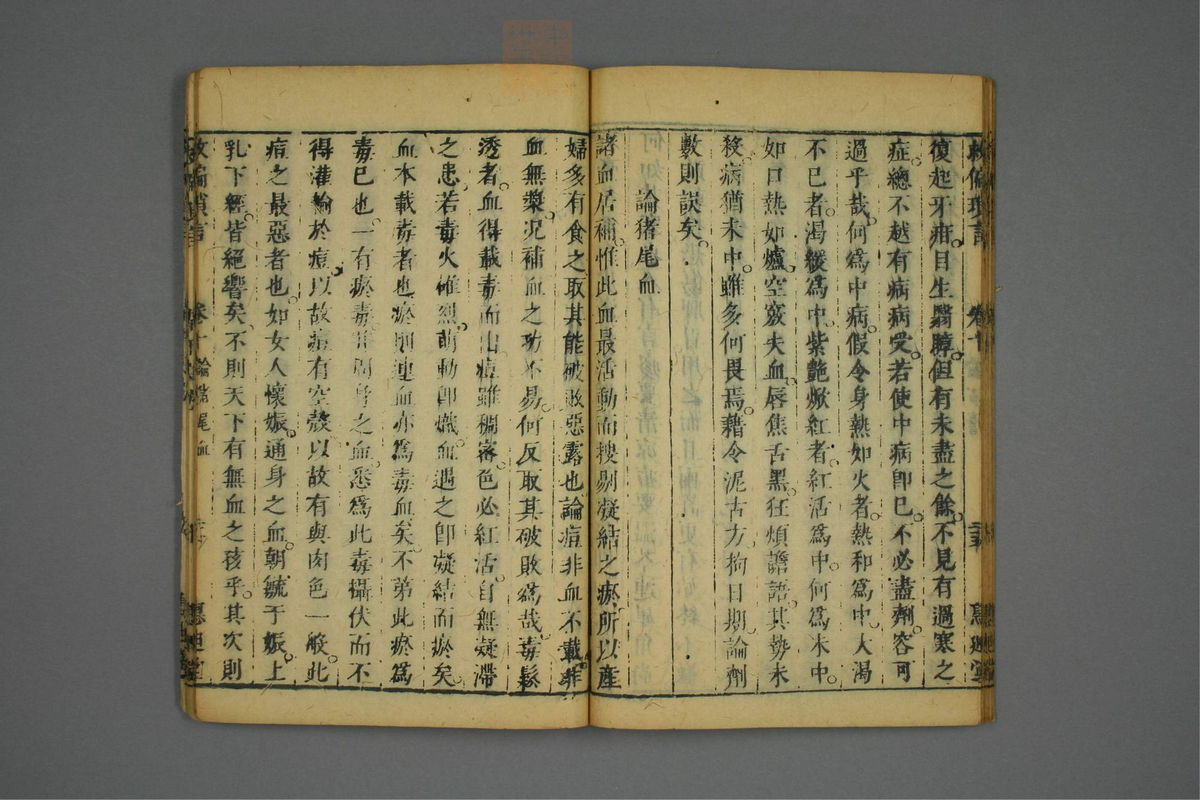 救偏瑣言 卷十
復起牙疳目生翳膜但有未盡之餘不見有過寒之
症總不越有病病受若使中病卽已不必盡劑容可
過乎哉何爲中病假令身熱如火者熱和爲中大渴
不已者渴緩爲中紫艶焮紅者紅活爲中何爲未中
如口熱如爐空竅夫血唇焦舌黑狂煩譫語其勢未
殺病猶未中雖多何畏焉藉令泥古方拘日期論劑
數則誤矣
論猪尾血
諸血居補惟此血最活動而搜剔凝結之瘀所以產
婦多有食之取其能破敗惡露也論痘非血不載非
血無漿况補血之功不易何反取其破敗爲哉毒鬆
透者血得載毒而出痘雖稠密色必紅活自無凝滯
之患若毒火惟烈萌動卽熾血遇之卽凝結而瘀矣
血本載毒者也瘀則連血亦爲毒血矣不第此瘀爲
毒已也一有瘀毒并周身之血悉爲此毒攝伏而不
得灌輸於痘以故痘有空殼以故有與肉色一般此
痘之最惡者也如女人懷娠通身之血朝毓于娠上
乳下經皆絕響矣不則天下有無血之孩乎其次則
救偏瑣言 卷十 論猪尾血